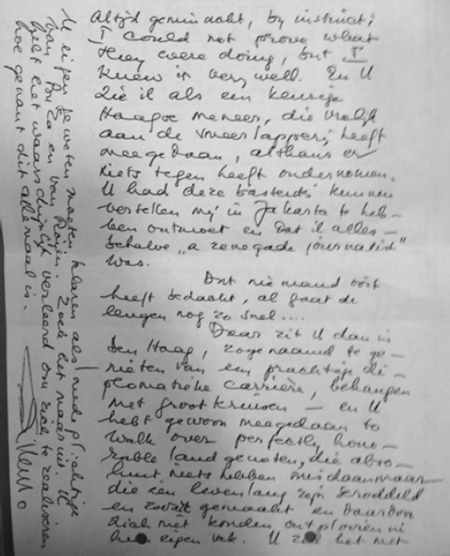 Altijd geminacht, by instinct;
I could not prove what
they were doing, but I
knew it very well. En U
zie ik als een keurige
Haagse meneer, die vrolijk
aan de smeerlapperij heeft
meegedaan, althans er
niets tegen heeft ondernomen.
U had deze bastards kunnen
vertellen mij in Jakarta te heb-
ben ontmoet en dat ik alles-
behalve „a renegade journalist"
was.
Dat niemand ooit
heeft bedacht, al gaat de
leugen nog zo snel....
Daar zit U dan in
Den Haag, zogenaamd te ge-
nieten van een prachtige di-
plomatieke carrière, behangen
met grootkruisen — en U
hebt gewoon meegedaan to
walk over perfectly hono-
rable landgenoten, die abso-
luut niets hebben misdaan maar
die een levenlang zijn beroddeld
en zwart gemaakt en daardoor
zich niet konden ontplooien in
hun eigen vak. U het met
U eigen geweten moeten klaren als medeplichtige
van en van Zoek het maar uit. U
hebt het waarschijnlijk verleerd om zich te realiseren
hoe gemeen dit allemaal is.